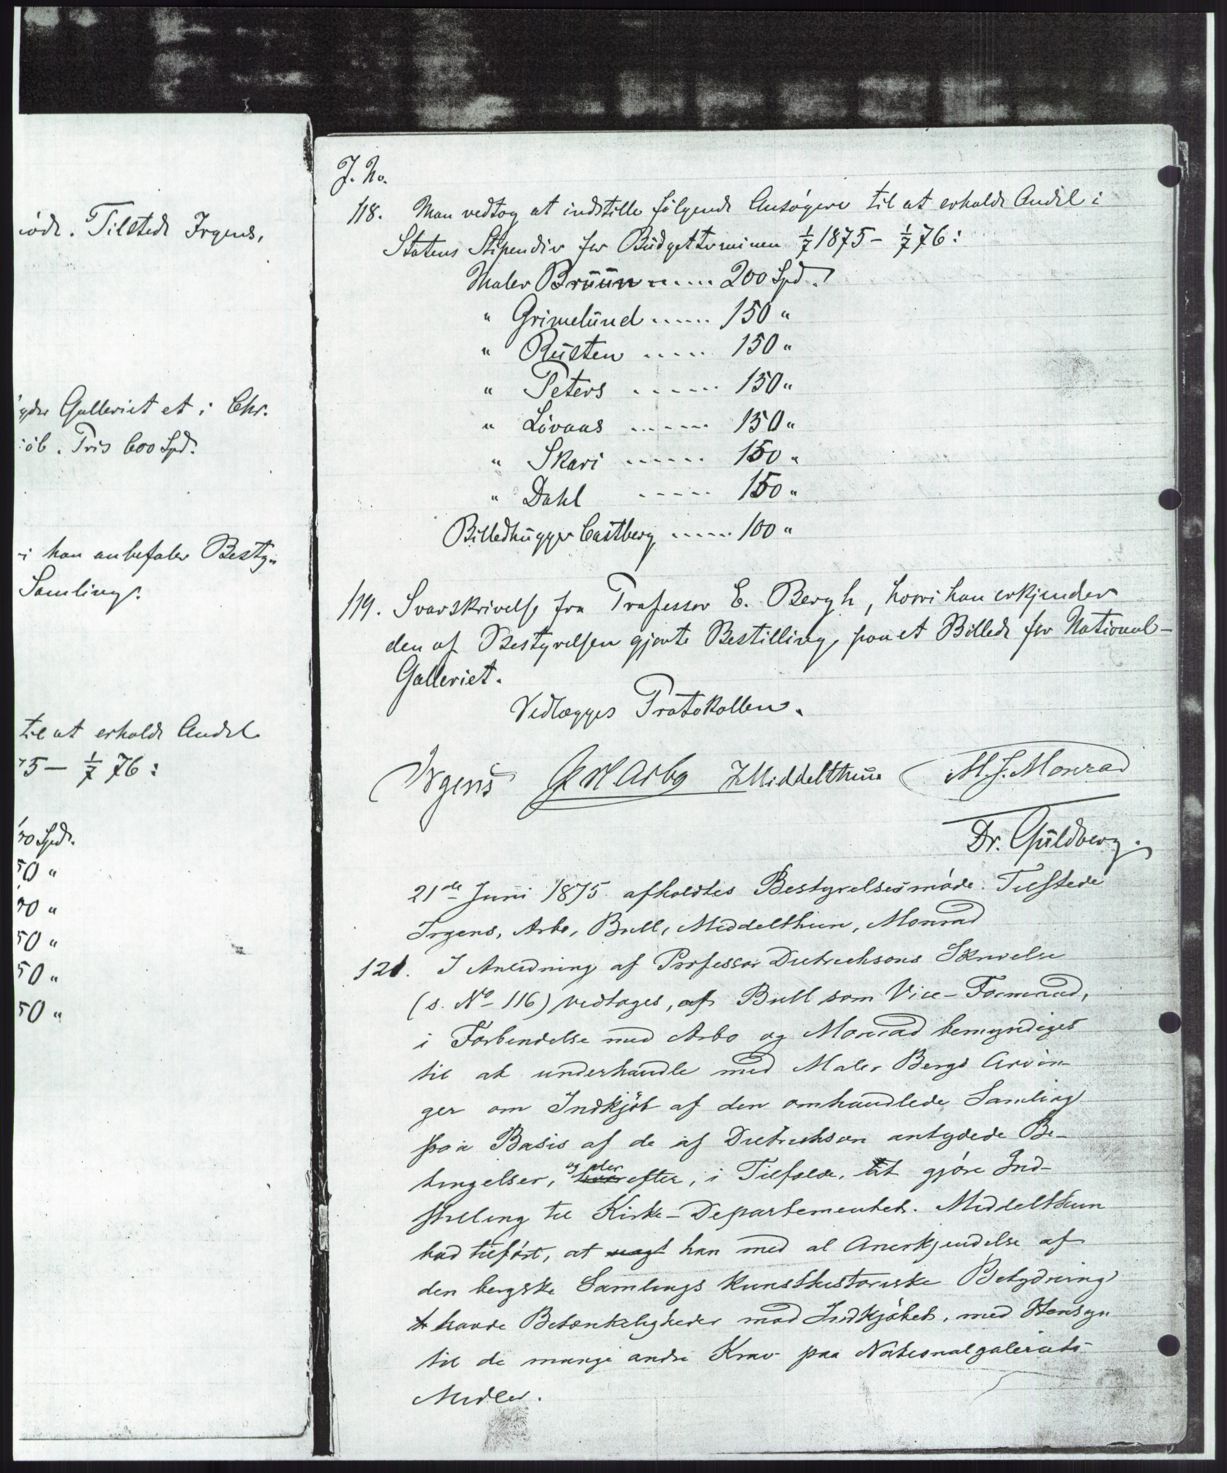 øde. Tilstede Irgens,
Galleriet et i Chr.
øb. Pris 600 Spd.
i han anbefaler Besty-
Samling.
til at erholde Andel
75 – 1/7 76:
50 Spd.
50 "
50 "
50 "
50 "
50 "
J. No.
118. Man vedtog at indstille følgende Ansøgere til at erholde Andel i
Statens Stipendier for Budgetterminen 1/7 1875 – 1/7 76:
Maler Bruun ...... 200 Spd.
" Grimelund ...... 150 "
" Rusten ...... 150 "
" Peters ...... 150 "
" Løvaas ...... 150 "
" Skari ...... 150 "
" Dahl ..... 150 "
Billedhugger Castberg ...... 100 "
119. Svarskrivelse fra Professor E. Bergh, hvori han erkjender
den af Bestyrelsen gjorte Bestilling paa et Billede for National-
Galleriet.
Vedlægges Protokollen.
Irgens Arbo Middelthun M.J. Monrad
Dr. Guldberg.
21de Juni 1875 afholdtes Bestyrelsesmøde. Tilstede
Irgens, Arbo, Bull, Middelthun, Monrad
121. I Anledning af Professor Dietrichsons Skrivelse
(s. No 116) vedtages, at Bull som Vice-Formand,
i Forbindelse med Arbo og Monrad bemyndiges
til at underhandle med Maler Bergs Arvin-
ger om Indkjøb af den omhandlede Samling
paa Basis af de af Dietrichson antydede Be-
tingelser, og derefter, i Tilfælde, at gjøre Ind-
stilling til Kirke-Departementet. Middelthun
bad tilført, at han med al Anerkjendelse af
den bergske Samlings kunsthistoriske Betydning
havde Betænkeligheder mod Indkjøbet, med Hensyn
til de mange andre Krav paa Nationalgaleriets
Midler.